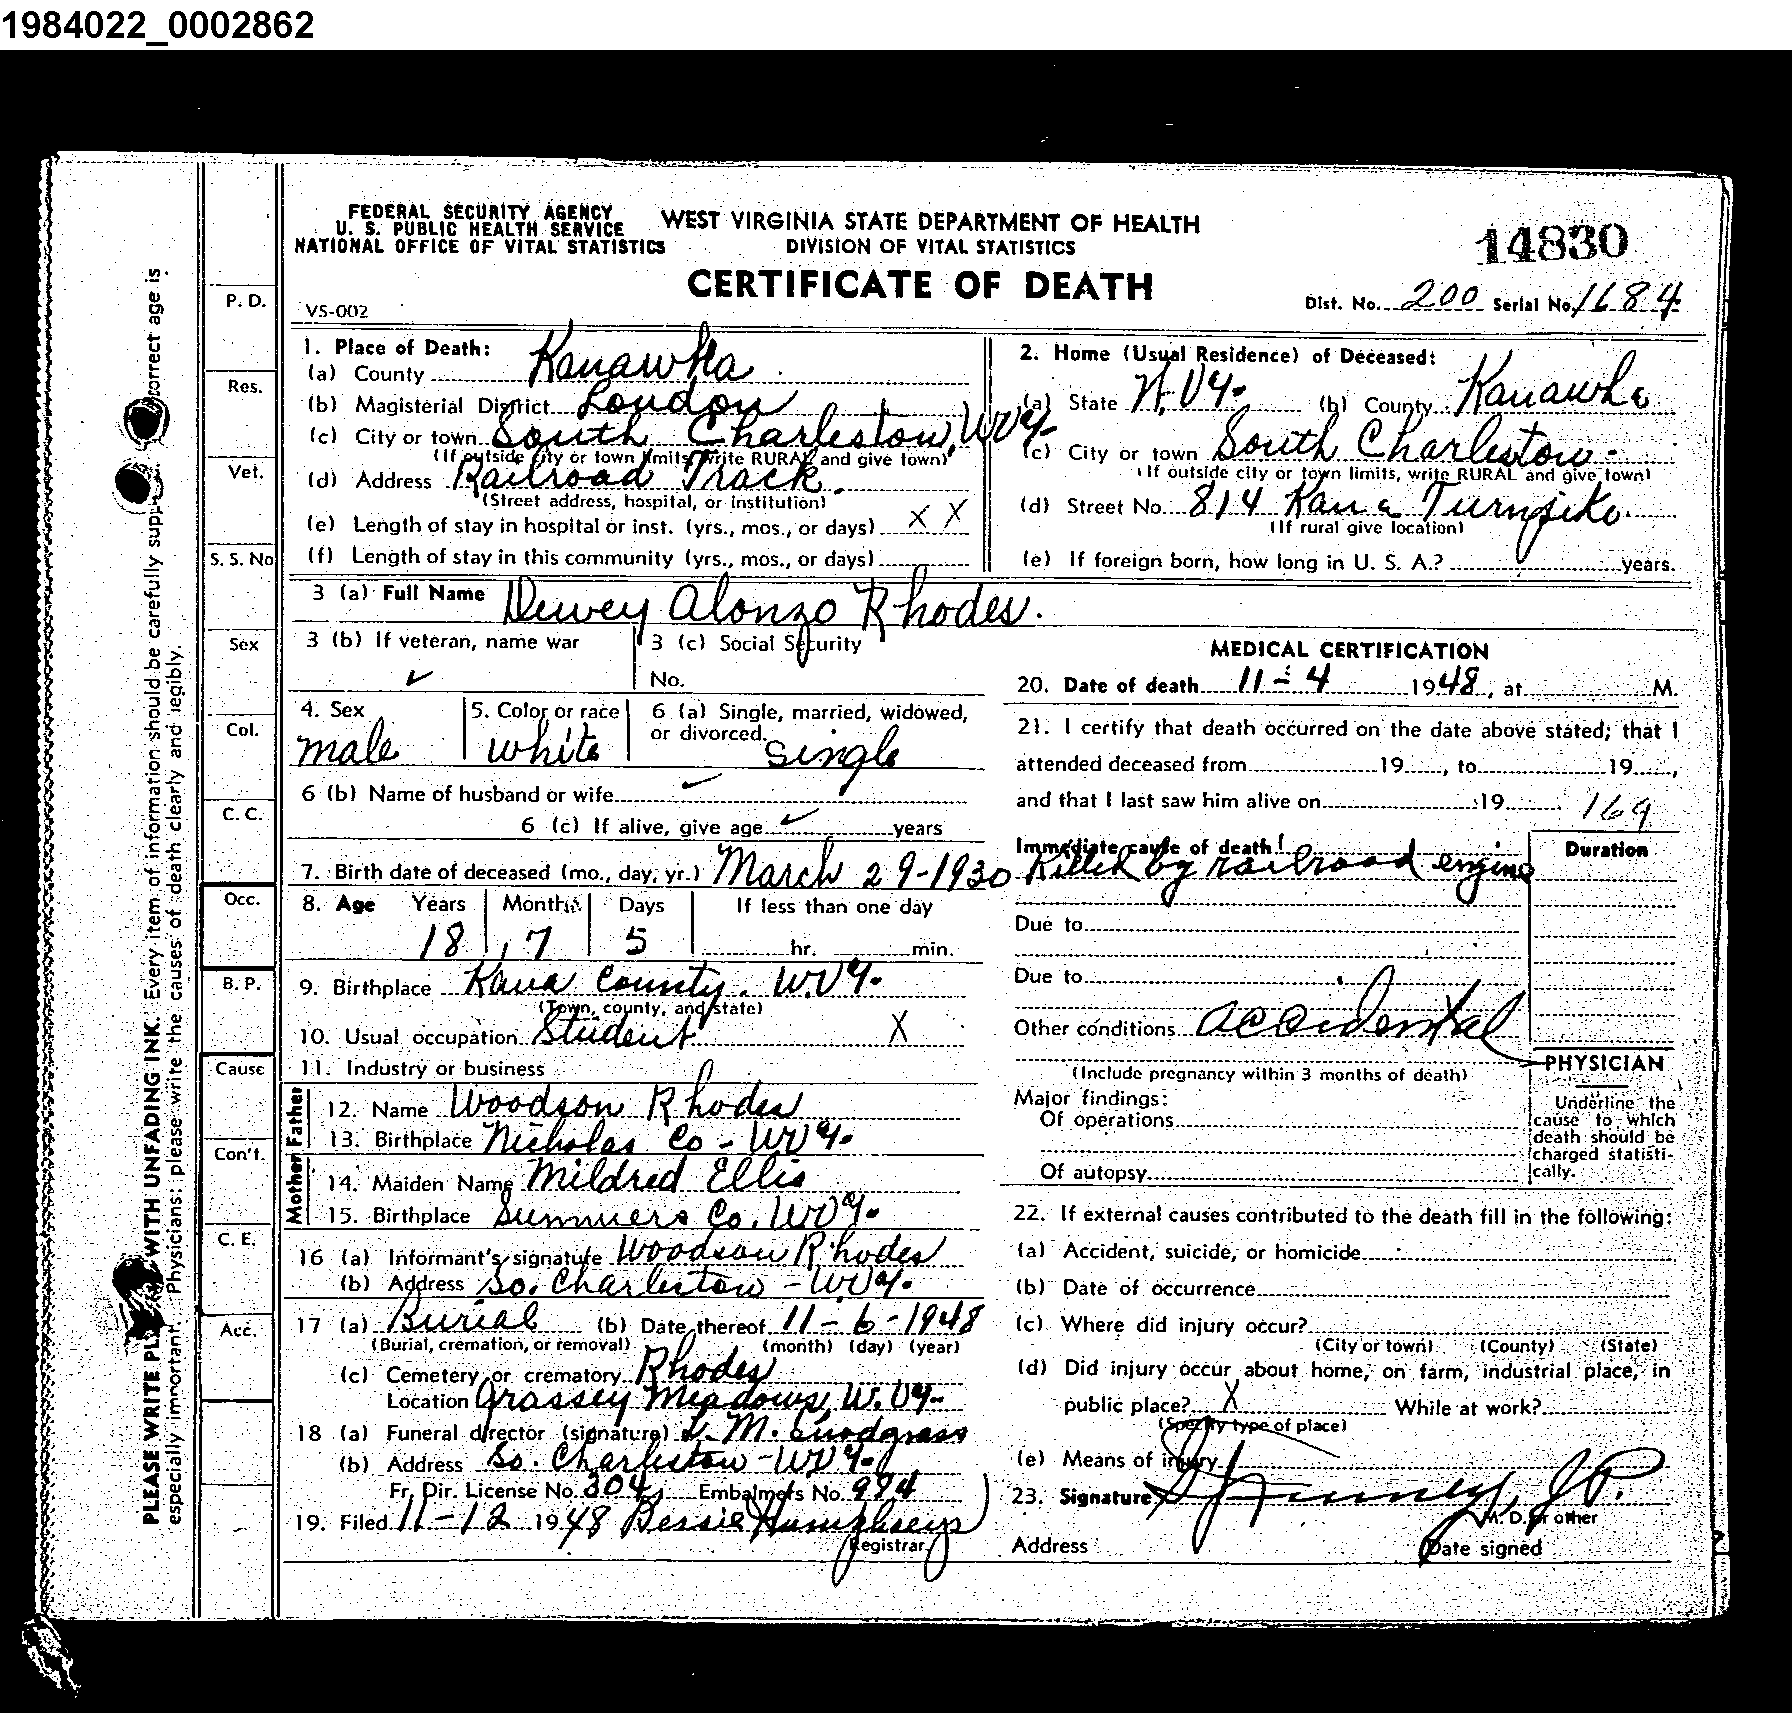 1984022_0002862
FEDERAL SECURITY AGENCY
U. S. PUBLIC HEALTH SERVICE
NATIONAL OFFICE OF VITAL STATISTICS
WEST VIRGINIA STATE DEPARTMENT OF HEALTH
DIVISION OF VITAL STATISTICS
CERTIFICATE OF DEATH
14830
VS-002
Dist. No. 200 Serial No. 1684
1. Place of Death:
(a) County Kanawha
(b) Magisterial District London
(c) City or town South Charleston, W Va.
(If outside city or town limits, write RURAL and give town)
(d) Address Railroad Track.
(Street address, hospital, or institution)
(e) Length of stay in hospital or inst. (yrs., mos., or days) X X
(f) Length of stay in this community (yrs., mos., or days)
2. Home (Usual Residence) of Deceased:
(a) State W. Va. (b) County Kanawha
(c) City or town South Charleston.
(If outside city or town limits, write RURAL and give town)
(d) Street No. 814 Kana Turnpike.
(If rural give location)
(e) If foreign born, how long in U. S. A.? years.
3 (a) Full Name Dewey Alonzo Rhodes.
3 (b) If veteran, name war ✓
3 (c) Social Security
No.
4. Sex male
5. Color or race white
6 (a) Single, married, widowed,
or divorced. single
6 (b) Name of husband or wife ✓
6 (c) If alive, give age ✓ years
7. Birth date of deceased (mo., day, yr.) March 29-1930
8. Age Years Months Days If less than one day
18 7 5 hr. min.
9. Birthplace Kana County. W. Va.
(Town, county, and state)
10. Usual occupation Student X
11. Industry or business
Father
12. Name Woodson Rhodes
13. Birthplace Nicholas Co - W Va.
Mother
14. Maiden Name Mildred Ellis
15. Birthplace Summers Co. W Va.
16 (a) Informant's signature Woodson Rhodes
(b) Address So. Charleston - W. Va.
17 (a) Burial (b) Date thereof 11-6-1948
(Burial, cremation, or removal) (month) (day) (year)
(c) Cemetery or crematory Rhodes
Location Grassey Meadows, W. Va.
18 (a) Funeral director (signature) L. M. Snodgrass
(b) Address So. Charleston - W Va.
Fr. Dir. License No. 304 Embalmers No. 984
19. Filed 11-12 1948 Bessie Humphreys
Registrar
MEDICAL CERTIFICATION
20. Date of death 11-4 1948, at M.
21. I certify that death occurred on the date above stated; that I
attended deceased from 19 , to 19 ,
and that I last saw him alive on 19 169
Immediate cause of death Killed by railroad engine
Duration
Due to
Due to
Other conditions accidental
(Include pregnancy within 3 months of death)
Major findings:
Of operations
Of autopsy
PHYSICIAN
Underline the
cause to which
death should be
charged statisti-
cally.
22. If external causes contributed to the death fill in the following:
(a) Accident, suicide, or homicide
(b) Date of occurrence
(c) Where did injury occur?
(City or town) (County) (State)
(d) Did injury occur about home, on farm, industrial place, in
public place? X While at work?
(Specify type of place)
(e) Means of injury
23. Signature J.P.
M. D. or other
Address Date signed
P. D.
Res.
Vet.
S. S. No
Sex
Col.
C. C.
Occ.
B. P.
Cause
Con't.
C. E.
Acc.
PLEASE WRITE WITH UNFADING INK. Every item of information should be carefully correct age is
especially important. Physicians: please write the causes of death clearly and legibly.